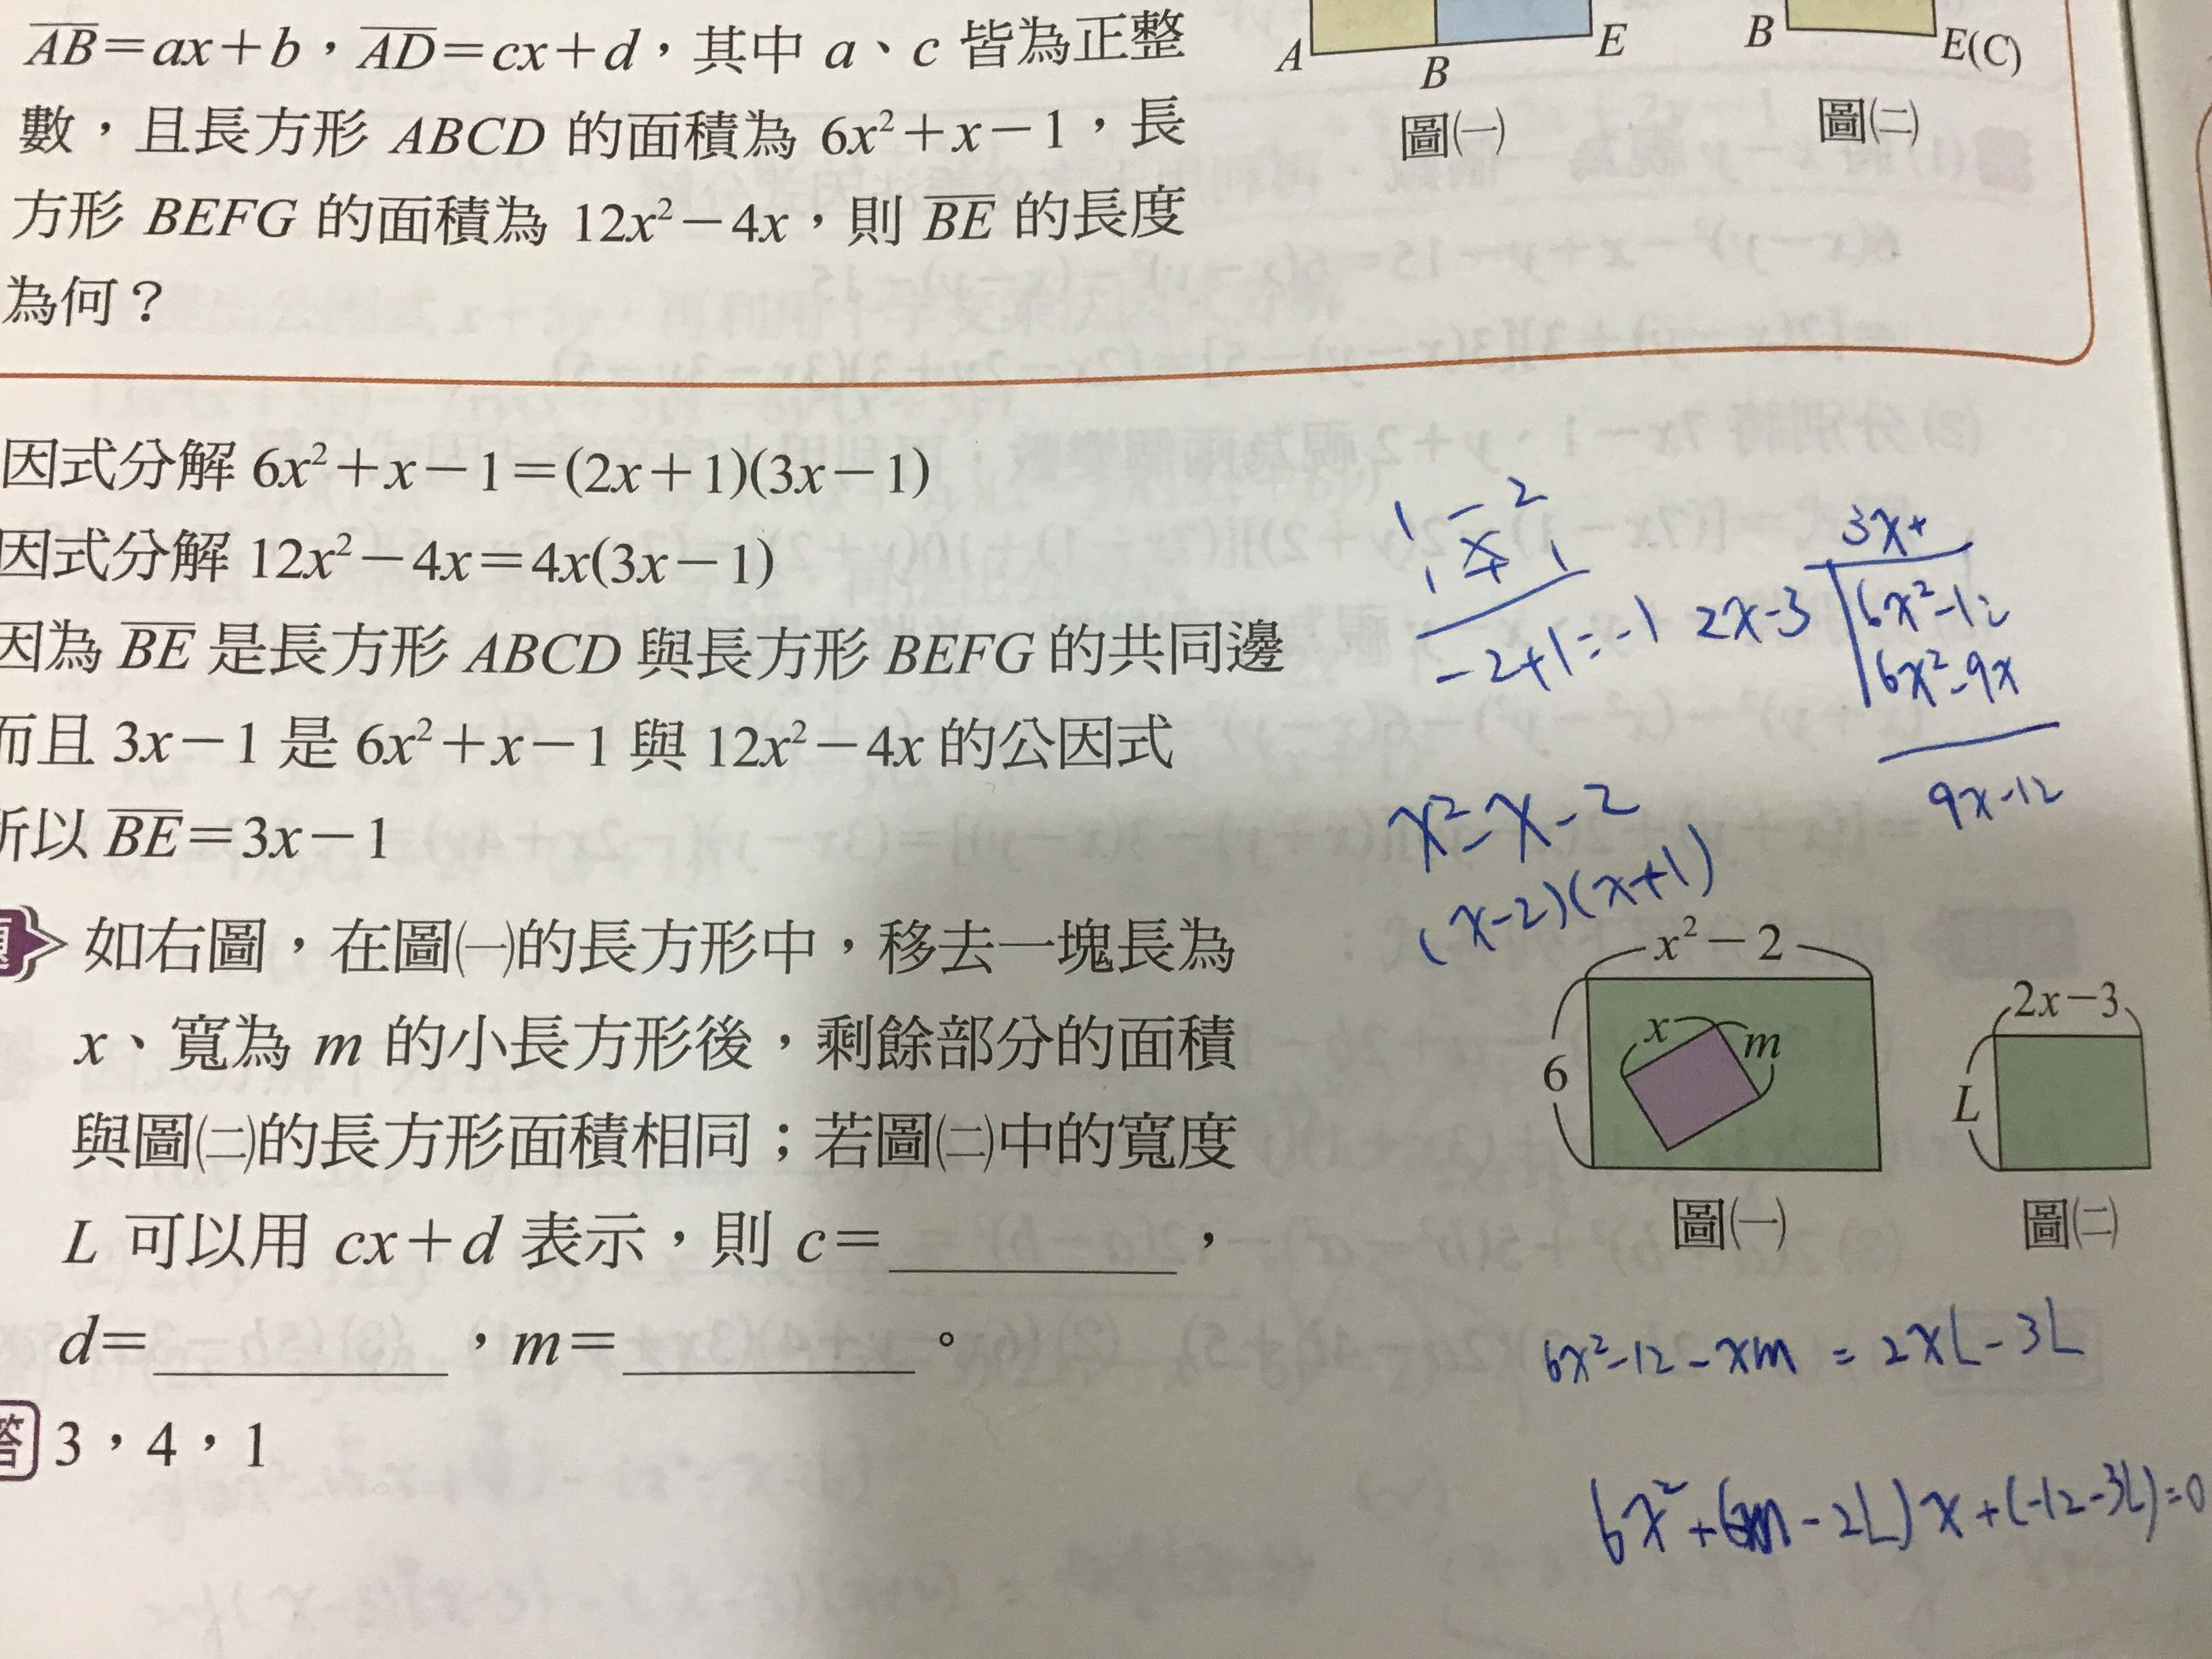 AB=ax+b，AD=cx+d，其中 a、c 皆為正整
數，且長方形 ABCD 的面積為 6x²+x−1，長
方形 BEFG 的面積為 12x²−4x，則 BE 的長度
為何？
A
B
E
圖㈠
B
E(C)
圖㈡
因式分解 6x²+x−1=(2x+1)(3x−1)
因式分解 12x²−4x=4x(3x−1)
因為 BE 是長方形 ABCD 與長方形 BEFG 的共同邊
而且 3x−1 是 6x²+x−1 與 12x²−4x 的公因式
所以 BE=3x−1
1 −2
1 1
−2+1=−1
3x+
2x-3
6x²-12
6x²-9x
9x-12
x²-x-2
(x-2)(x+1)
如右圖，在圖㈠的長方形中，移去一塊長為
x、寬為 m 的小長方形後，剩餘部分的面積
與圖㈡的長方形面積相同；若圖㈡中的寬度
L 可以用 cx+d 表示，則 c=，
d=，m=。
答 3，4，1
x²−2
x
m
6
圖㈠
2x−3
L
圖㈡
6x²-12-xm = 2xL-3L
-2L)x+(-12-3L)=0